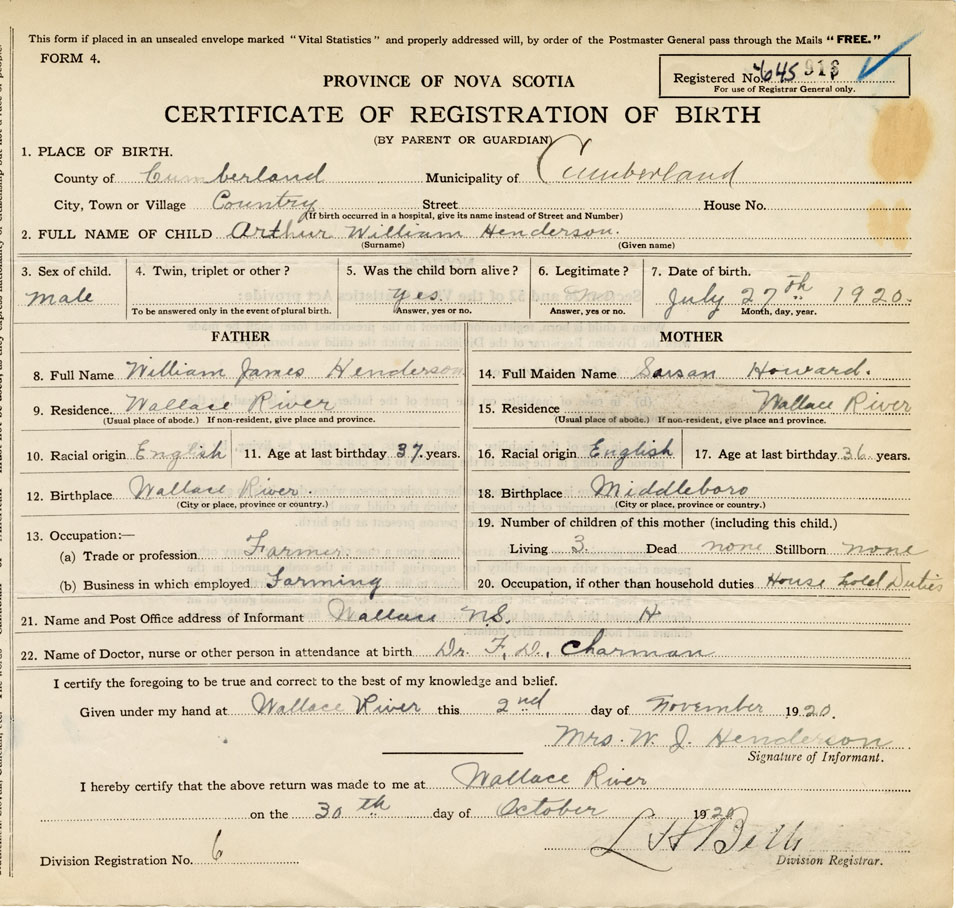 This form if placed in an unsealed envelope marked "Vital Statistics" and properly addressed will, by order of the Postmaster General pass through the Mails "FREE."
FORM 4.
Registered No. 645 918
For use of Registrar General only.
PROVINCE OF NOVA SCOTIA
CERTIFICATE OF REGISTRATION OF BIRTH
(BY PARENT OR GUARDIAN)
1. PLACE OF BIRTH.
County of Cumberland Municipality of Cumberland
City, Town or Village Country Street House No.
(If birth occurred in a hospital, give its name instead of Street and Number)
2. FULL NAME OF CHILD Arthur William Henderson.
(Surname) (Given name)
3. Sex of child. 4. Twin, triplet or other? 5. Was the child born alive? 6. Legitimate? 7. Date of birth.
Male Yes. July 27th 1920.
To be answered only in the event of plural birth. Answer, yes or no. Answer, yes or no. Month, day, year.
FATHER MOTHER
8. Full Name William James Henderson 14. Full Maiden Name Susan Howard.
9. Residence. Wallace River 15. Residence Wallace River
(Usual place of abode.) If non-resident, give place and province. (Usual place of abode.) If non-resident, give place and province.
10. Racial origin English 11. Age at last birthday 37. years. 16. Racial origin English 17. Age at last birthday 36 years.
12. Birthplace Wallace River. 18. Birthplace Middleboro
(City or place, province or country.) (City or place, province or country.)
13. Occupation:— 19. Number of children of this mother (including this child.)
(a) Trade or profession Farmer Living 3. Dead none Stillborn none
(b) Business in which employed Farming 20. Occupation, if other than household duties House hold Duties
21. Name and Post Office address of Informant Wallace NS. H
22. Name of Doctor, nurse or other person in attendance at birth Dr. F. D. Charman
I certify the foregoing to be true and correct to the best of my knowledge and belief.
Given under my hand at Wallace River this 2nd day of November 1920.
Mrs. W. J. Henderson
Signature of Informant.
I hereby certify that the above return was made to me at Wallace River
on the 30th day of October 1920
Division Registration No. 6
Division Registrar.